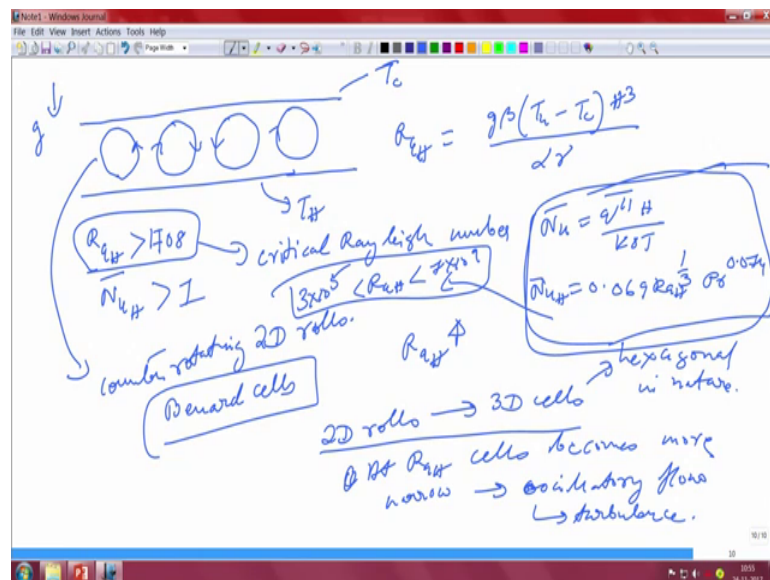 Note1 - Windows Journal
File Edit View Insert Actions Tools Help
Page Width
g
T_c
Ra_H = gβ(T_H - T_c) H^3 / αγ
T_H
Ra_H > 1708 → critical Rayleigh number
N̄u_H > 1
3x10^5 < Ra_H < 7x10^9
N̄u = q̄'' H / KΔT
N̄u_H = 0.069 Ra_H^1/3 Pr^0.074
counter rotating 2D rolls.
Benard cells
Ra_H ↑
2D rolls → 3D cells → hexagonal
in nature.
At Ra_H cells becomes more
narrow → oscillatory flow
↳ turbulence.
10/10
10
10:55